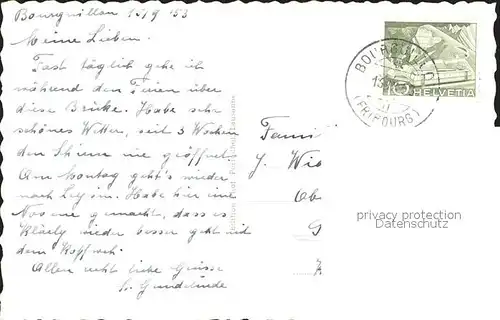 Bourguillon 13/9 153
Meine Lieben.
Fast täglich gehe ich
während den Ferien über
diese Brücke. Habe sehr
schönes Wetter, seit 3 Wochen
den Schirm nie geöffnet.
Am Montag geht's wieder
nach Leysin. Habe hier eine
Novene gemacht, dass es
wieder besser geht mit
dem Kopfweh.
Allen recht liebe Grüsse
Sr. Gundelinde
Fami
J. Wie
Ob
G
BOURGUILLON
13
(FRIBOURG)
10
HELVETIA
privacy protection
Datenschutz